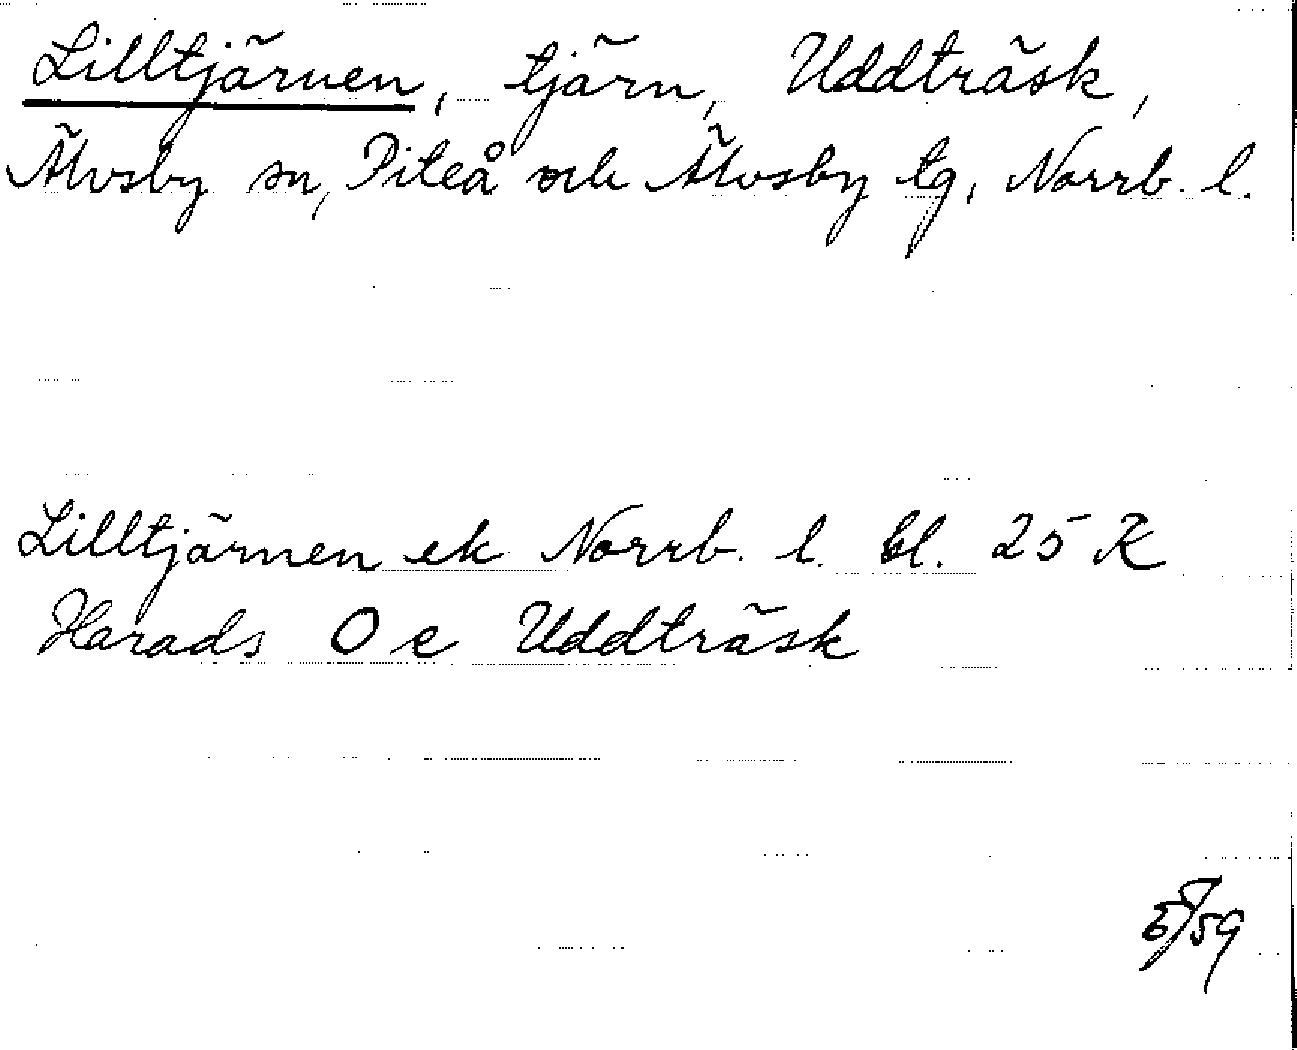 Lilltjärnen, tjärn, Uddträsk,
Älvsby sn, Piteå och Älvsby tg, Norrb. l.
Lilltjärnen ek Norrb. l. bl. 25 K
Harads O e Uddträsk